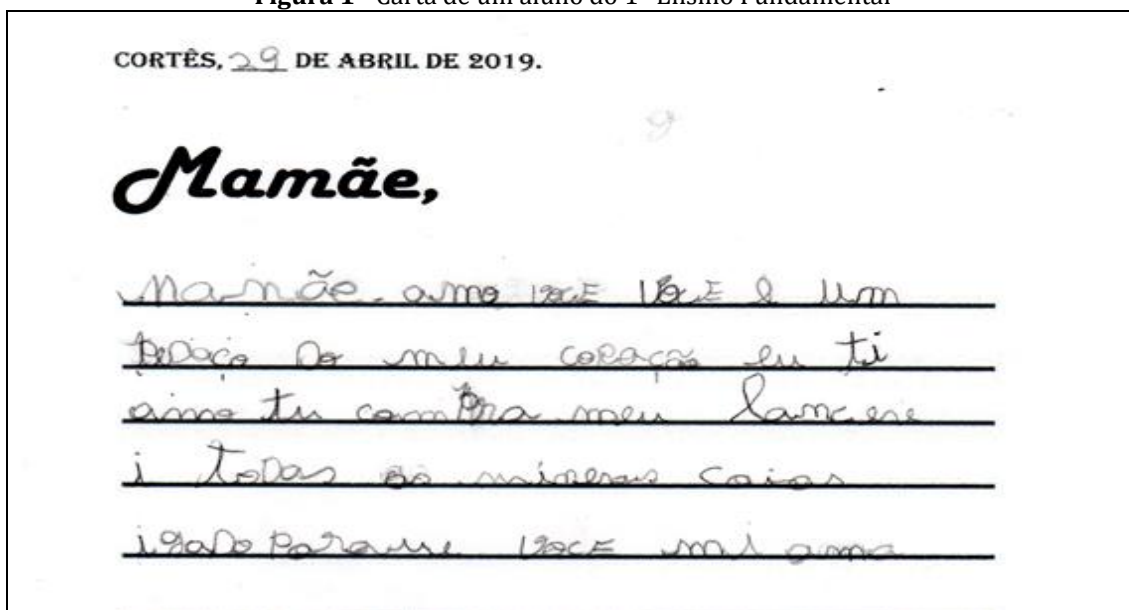 Figura 1 - Carta de um aluno do 1º Ensino Fundamental
CORTÊS, 29 DE ABRIL DE 2019.
Mamãe,
Mamãe amo VOCE VOCE e um
pedaço do meu coração eu ti
amo tu compra meu
i todas as coisas
você mi ama